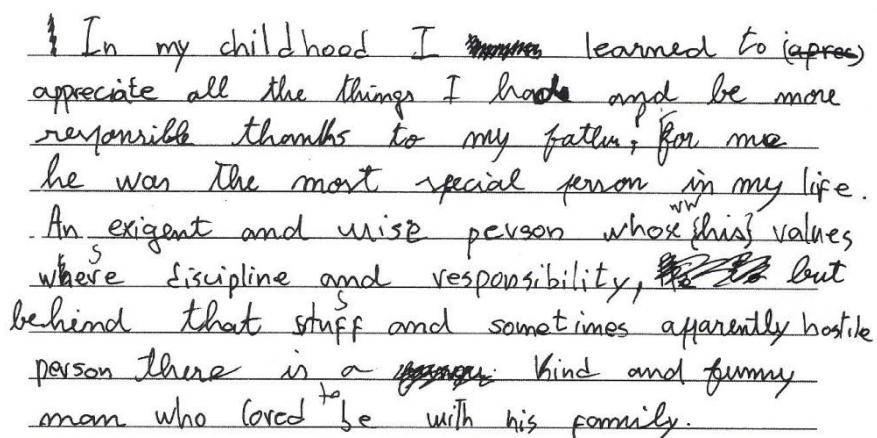 In my childhood I learned to (apres)
appreciate all the things I had and be more
responsible thanks to my father, for me
he was the most special person in my life.
An exigent and wise person whose {his} values
where discipline and responsibility, but
behind that stuff and sometimes apparently hostile
person there is a kind and funny
man who loved to be with his family.